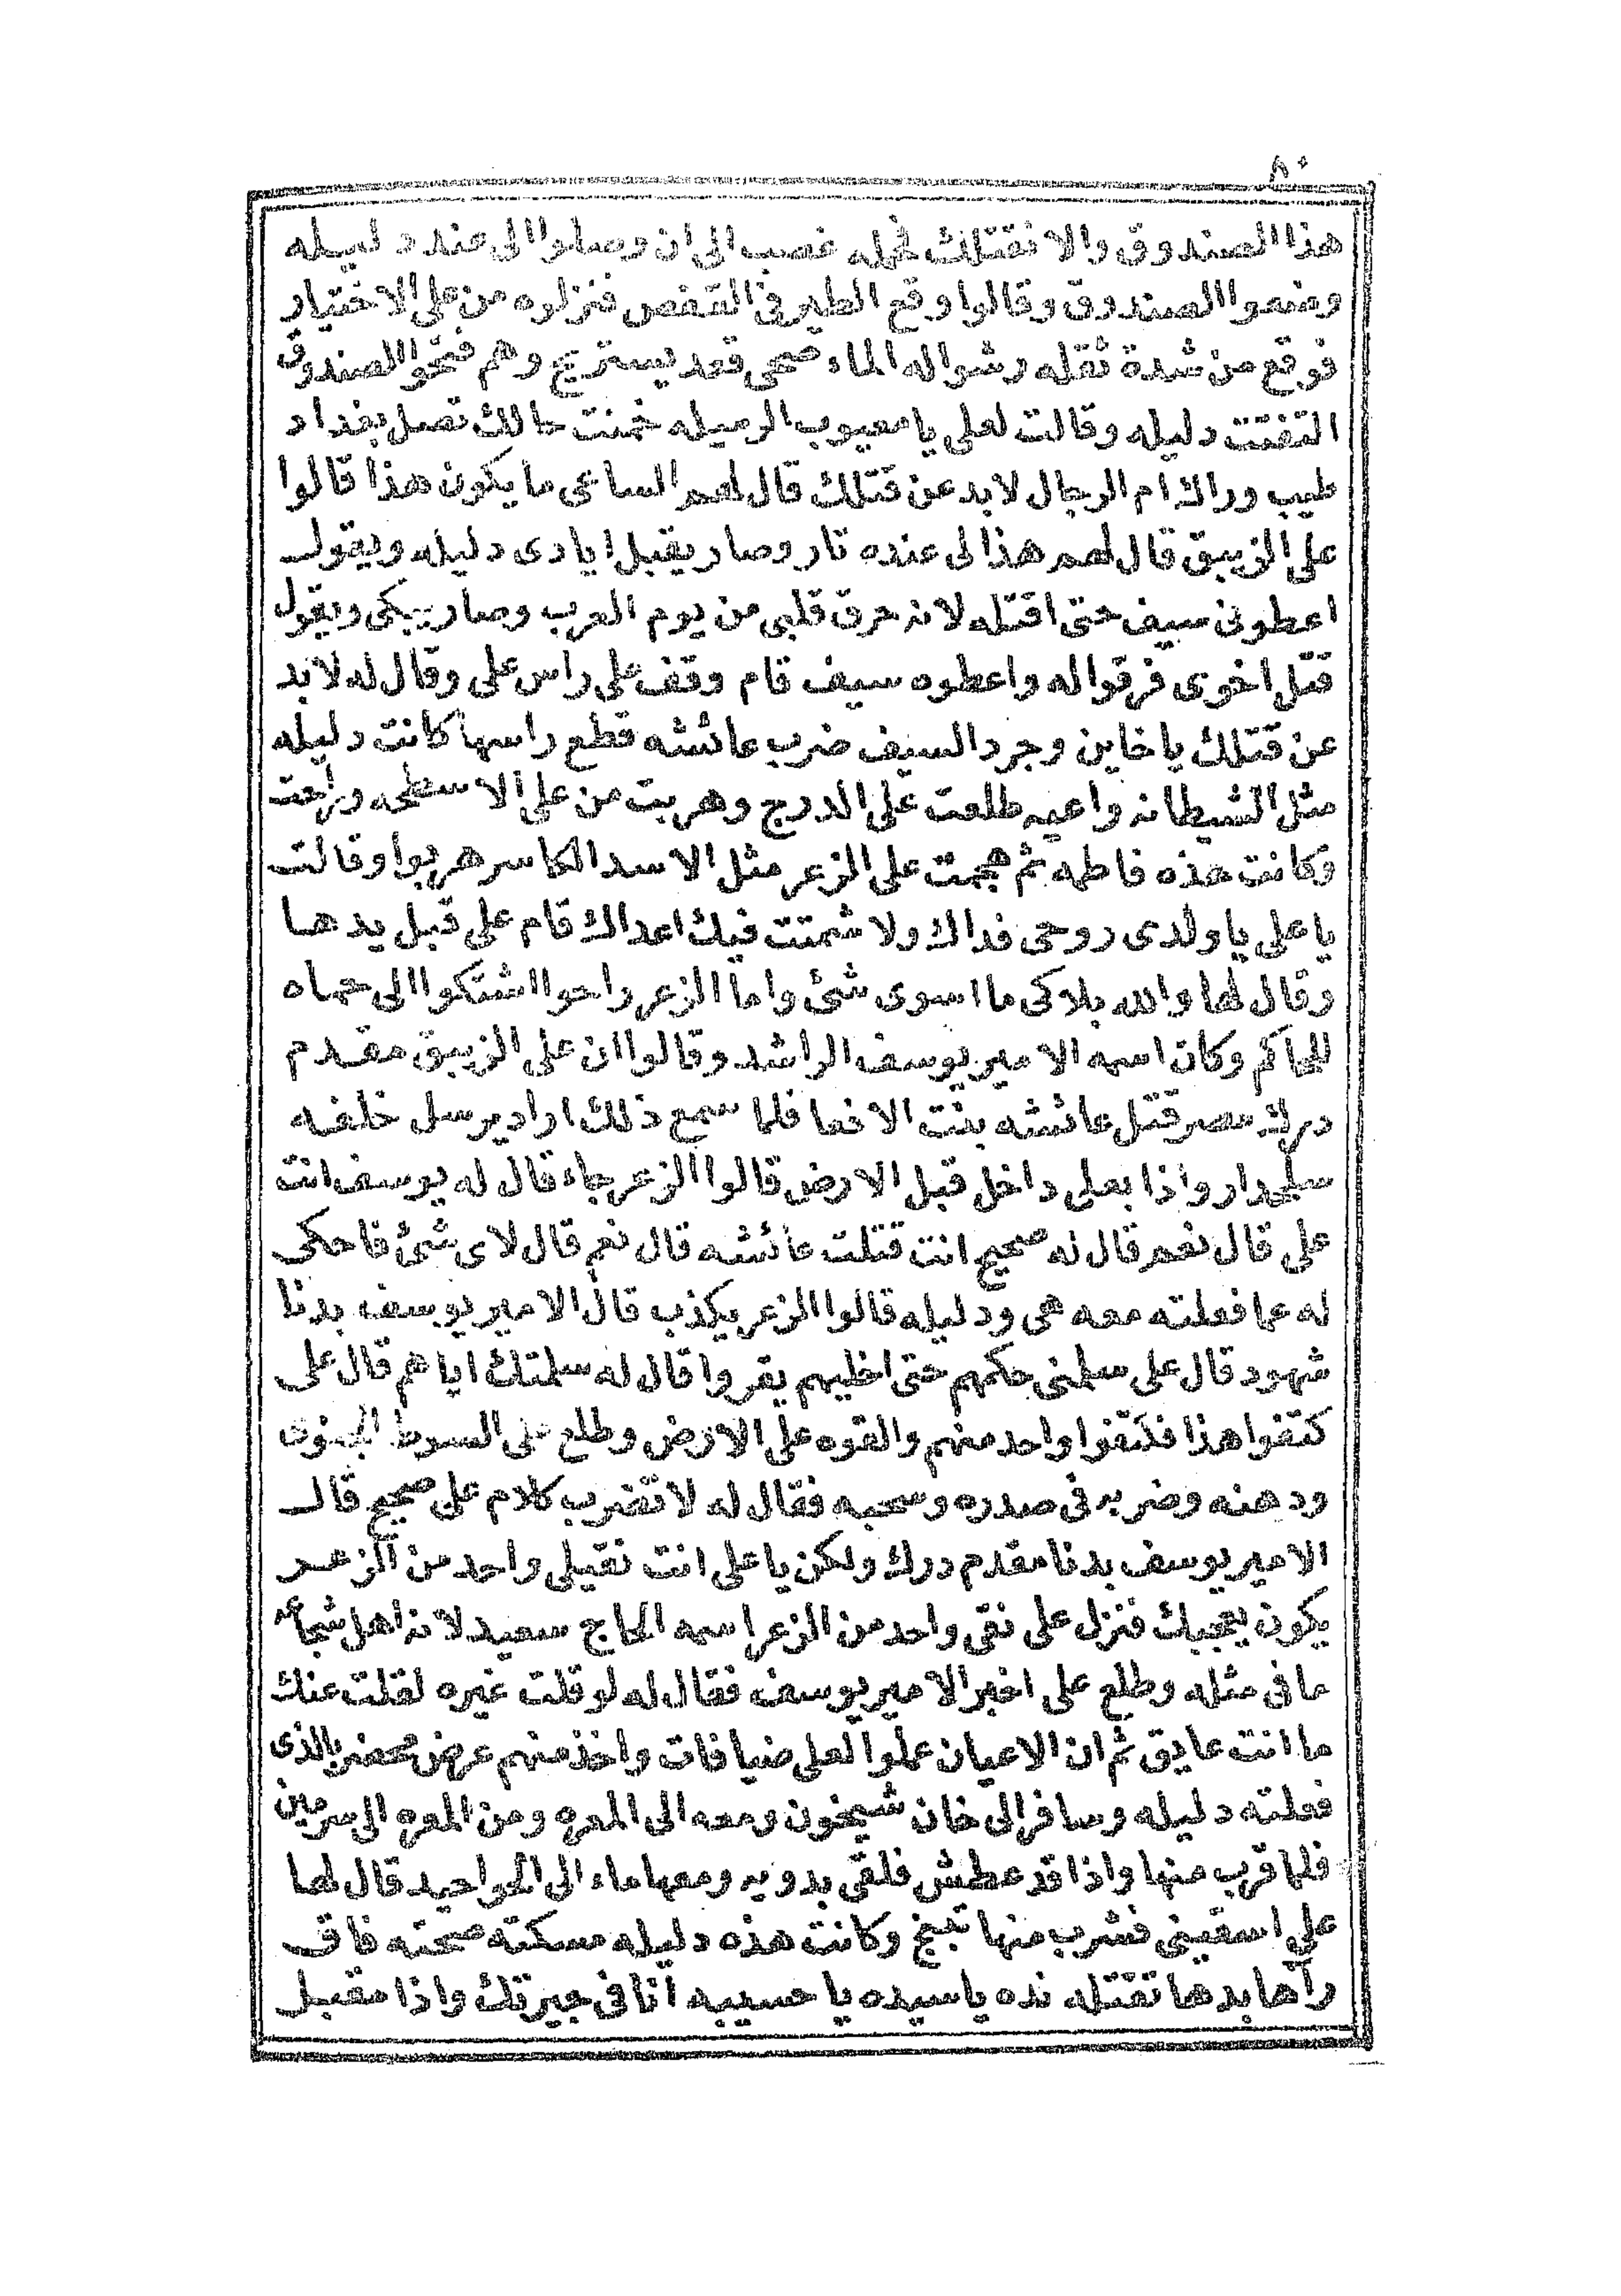 ٨٠
هذا الصندوق والا نقتلك فحمله غصب الى ان وصلوا الى عند دليله
وضعوا الصندوق وقالوا وقع الطير فى القفص فنزلوه من على الاختيار
فوقع من شدة ثقله رشوا له الماء صحى قعد يستريح وهم فتحوا الصندوق
التفتت دليله وقالت لعلى يا معيوب الرميله خمنت حالك تصل بغداد
طيب وراك ام الرجال لا بد عن قتلك قال لهم الساعى ما يكون هذا قالوا
على الزيبق قال لهم هذا لى عنده تار وصار يقبل ايادى دليله ويقول
اعطونى سيف حتى اقتله لانه حرق قلبى من يوم العرب وصار يبكى ويقول
قتل اخوى فرقوا له واعطوه سيف قام وقف على راس على وقال له لا بد
عن قتلك يا خاين وجرد السيف ضرب عائشه قطع راسها كانت دليله
مثل الشيطانه واعيه طلعت على الدرج وهربت من على الاسطحه وراحت
وكانت هذه فاطمه ثم هجمت على الزعر مثل الاسد الكاسر هربوا وقالت
يا على يا ولدى روحى فداك ولا شمتت فيك اعداك قام على قبل يدها
وقال لها والله بلاكى ما اسوى شئ واما الزعر راحوا اشتكوا الى حماه
للحاكم وكان اسمه الامير يوسف الراشد وقالوا ان على الزيبق مقدم
درك مصر قتل عائشه بنت الافعا فلما سمع ذلك اراد يرسل خلفه
سلحدار واذا بعلى داخل قبل الارض قالوا الزعر جاء قال له يوسف انت
على قال نعم قال له صحيح انت قتلت عائشه قال نعم قال لاى شئ فاحكى
له عما فعلته معه هى ودليله قالوا الزعر يكذب قال الامير يوسف بدنا
شهود قال على سلمنى حكمهم حتى اخليهم يقروا قال له سلمتك اياهم قال على
كتفوا هذا فكتفوا واحد منهم والقوه على الارض وطلع على السوط
ودهنه وضربه فى صدره وسحبه فقال له لا تضرب كلام على صحيح قال
الامير يوسف بدنا مقدم درك ولكن يا على انت نقيلى واحد من الزعر
يكون يعجبك فنزل على نقى واحد من الزعر اسمه الحاج سعيد لانه اهل شجاعه
ما فى مثله وطلع على اخبر الامير يوسف فقال له لو قلت غيره لقلت عنك
ما انت عايق ثم ان الاعيان عملوا لعلى ضيافات واخذ منهم عرض محضر بالذى
فعلته دليله وسافر الى خان شيخون ومعه الى المعره ومن المعره الى سرمين
فلما قرب منها واذا قد عطش فلقى بدويه ومعها ماء الى الحواحيد قال لها
على اسقينى فشرب منها تبنج وكانت هذه دليله مسكته صحته فاق
رآها بدها تقتله نده يا سيده يا حسيبه انا فى جيرتك واذا مقبل